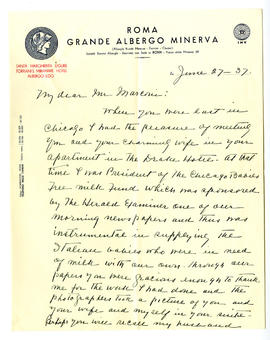 ROMA
GRANDE ALBERGO MINERVA
SANTA MARGHERITA LIGURE
ALBERGO LIDO
June 27-37.
My dear Mr Marconi:
When you were last in
Chicago I had the pleasure of meeting
you and your charming wife in your
apartment in the Drake Hotel. at that
time I was President of the Chicago Babies
Free Milk Fund which was sponsored
by The Herald Examiner one of our
morning newspapers and thus was
instrumental in supplying the
Italian babies who were in need
of milk with our own. through our
papers you were gracious enough to thank
me for the work I had done and the
photographers took a picture of you and
your wife and myself in your suite
perhaps you will recall my husband